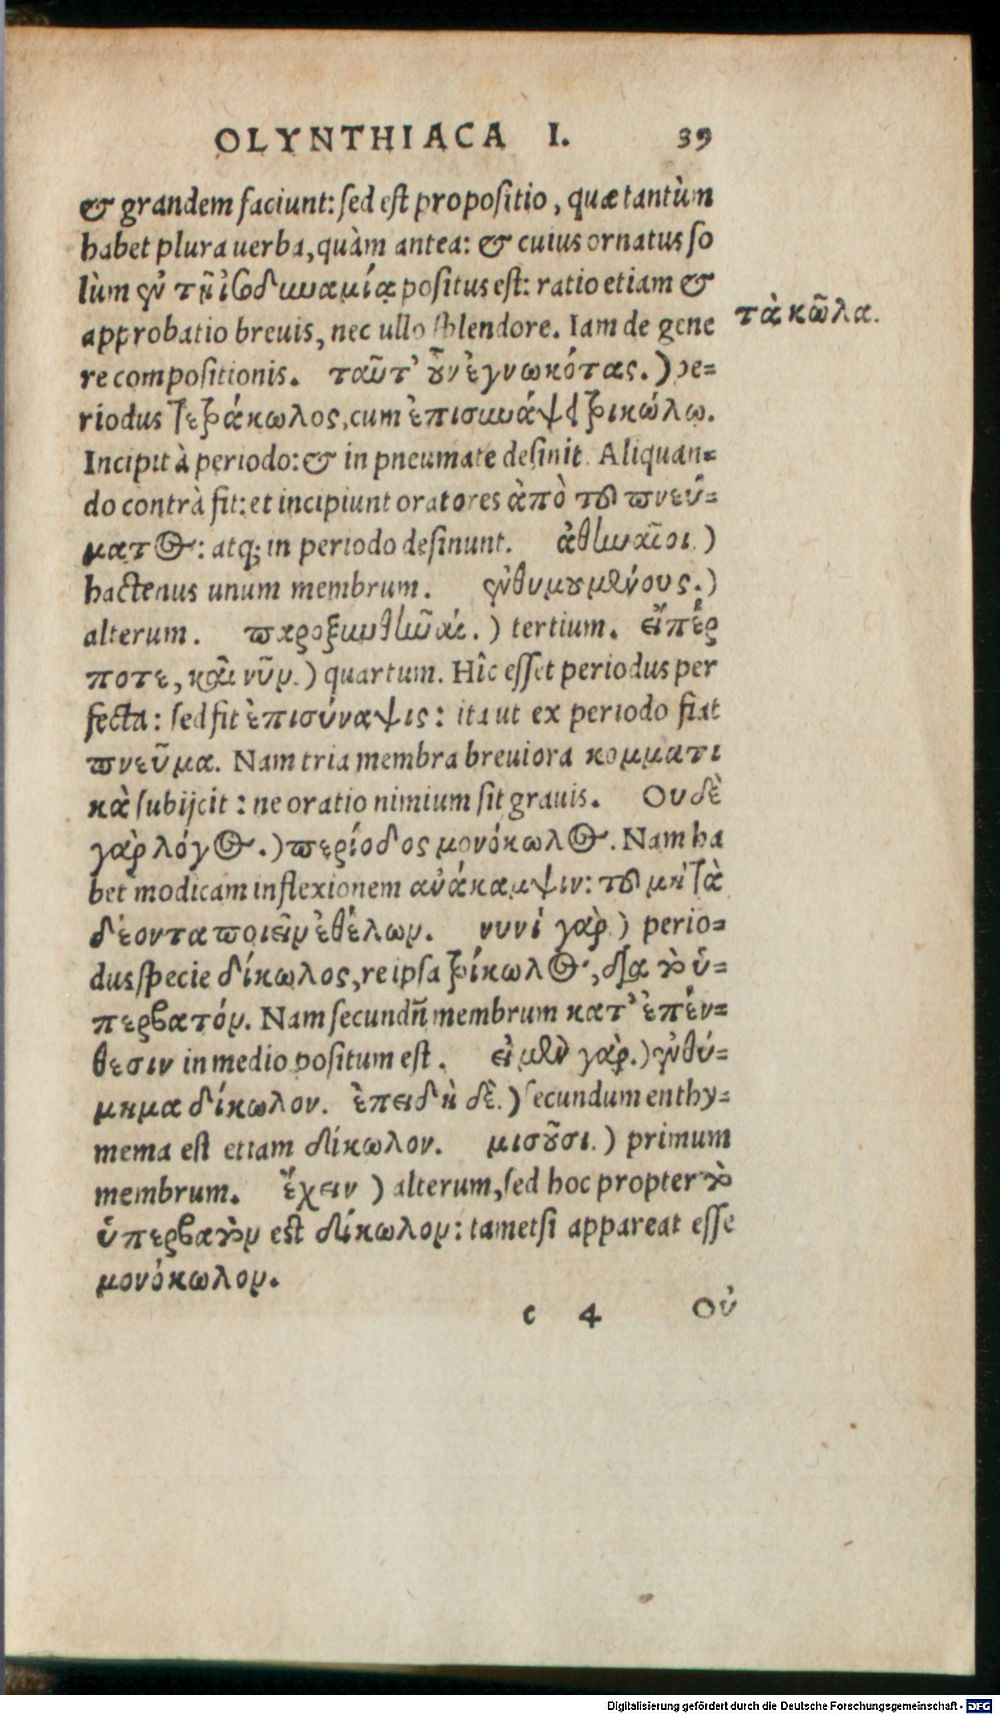 OLYNTHIACA I. 39
& grandem faciunt: sed est propositio, quæ tantùm
habet plura uerba, quàm antea: & cuius ornatus so
lùm ἐν τῇ ἰσοδυναμίᾳ positus est: ratio etiam &
approbatio breuis, nec ullo splendore. Iam de gene
τὰ κῶλα.
re compositionis. ταῦτ᾽ οὖν ἐγνωκότας.) pe-
riodus τετράκωλος, cum ἐπισυνάψει τρικώλω.
Incipit à periodo: & in pneumate desinit. Aliquan-
do contrà fit: et incipiunt oratores ἀπὸ τοῦ πνεύ-
ματος: atq; in periodo desinunt. ἀθηναῖοι.)
hactenus unum membrum. ἐνθυμουμένους.)
alterum. παροξυνθῆναι.) tertium. εἴπέρ
ποτε, καὶ νῦν.) quartum. Hîc esset periodus per
fecta: sed fit ἐπισύναψις: ita ut ex periodo fiat
πνεῦμα. Nam tria membra breuiora κομματι
κὰ subijcit: ne oratio nimium sit grauis. Ουδὲ
γὰρ λόγος.) περίοδος μονόκωλος. Nam ha
bet modicam inflexionem ανάκαμψιν: τοῦ μὴ τὰ
δέοντα ποιεῖν ἐθέλων. νυνί γὰρ) perio-
dus specie δίκωλος, reipsa τρίκωλος, διὰ τὸ ὑ-
περβατόν. Nam secundũ membrum κατ᾽ ἐπέν-
θεσιν in medio positum est. εἰ μὲν γὰρ.) ἐνθύ-
μημα δίκωλον. ἐπειδὴ δὲ.) secundum enthy-
mema est etiam δίκωλον. μισοῦσι.) primum
membrum. ἔχειν) alterum, sed hoc propter τὸ
ὑπερβατὸν est δίκωλον: tametsi appareat esse
μονόκωλον.
c 4 Οὐ
Digitalisierung gefördert durch die Deutsche Forschungsgemeinschaft - DFG